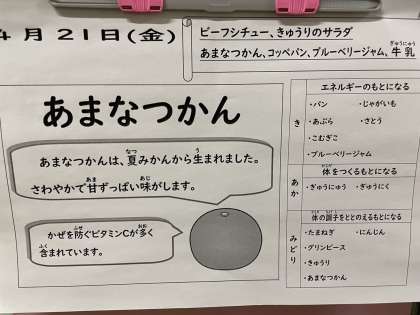 4月21日(金)
ビーフシチュー、きゅうりのサラダ
あまなつかん、コッペパン、ブルーベリージャム、牛乳
ぎゅうにゅう
あまなつかん
あまなつかんは、夏みかんから生まれました。
なつ
う
さわやかで甘ずっぱい味がします。
あま
あじ
かぜを防ぐビタミンCが多く
ふせ
おお
含まれています。
ふく
き
エネルギーのもとになる
・パン ・じゃがいも
・あぶら ・さとう
・こむぎこ
・ブルーベリージャム
あか
体をつくるもとになる
からだ
・ぎゅうにゅう ・ぎゅうにく
みどり
体の調子をととのえるもとになる
からだ ちょうし
・たまねぎ ・にんじん
・グリンピース
・きゅうり
・あまなつかん